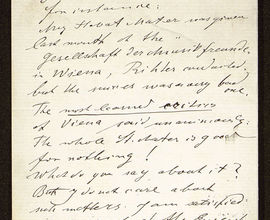 for instance:
My Stabat Mater was given
last month at the "
gesellschaft der
in Wiena, Richter conducted.
but the succes was a very bad one.
The most learned critics
of Viena said unanimously:
The whole St. Mater is good
for nothing!
What do you say about it?
But I do not care about
such matters. I am satisfied: